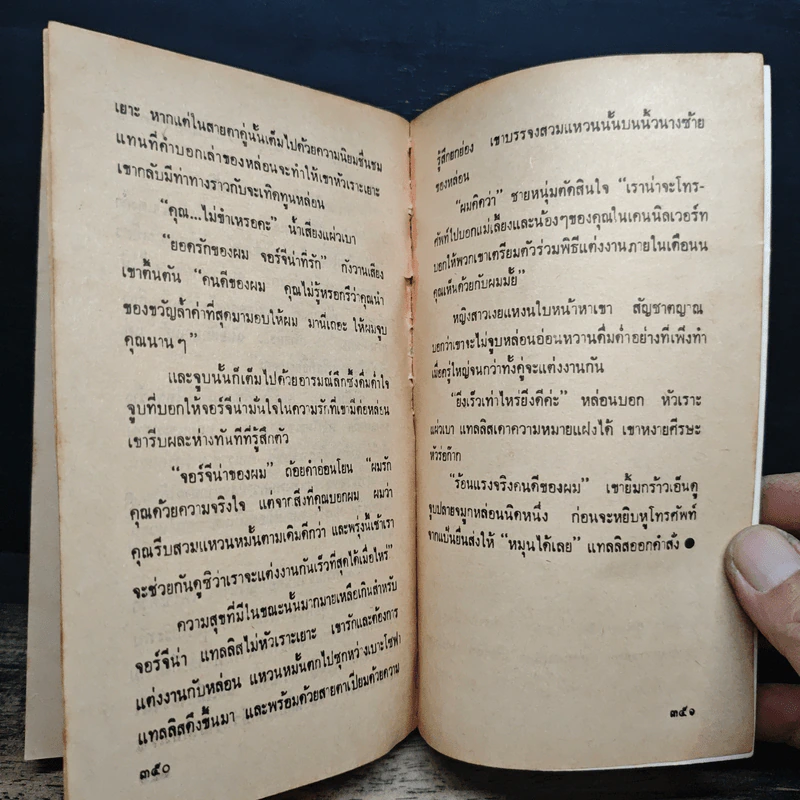 เยาะ หากแต่ในสายตาคู่นั้นเต็มไปด้วยความนิยมชื่นชม
แทนที่คำบอกเล่าของหล่อนจะทำให้เขาหัวเราะเยาะ
เขากลับมีท่าทางราวกับจะเทิดทูนหล่อน
“คุณ...ไม่ขำเหรอคะ” น้ำเสียงแผ่วเบา
“ยอดรักของผม จอร์จีน่าที่รัก” กังวานเสียง
เขาตื้นตัน “คนดีของผม คุณไม่รู้หรอกรึว่าคุณนำ
ของขวัญล้ำค่าที่สุดมามอบให้ผม มานี่เถอะ ให้ผมจูบ
คุณนานๆ”
และจูบนั้นก็เต็มไปด้วยอารมณ์ลึกซึ้งดื่มด่ำใจ
จูบที่บอกให้จอร์จีน่ามั่นใจในความรักที่เขามีต่อหล่อน
เขารีบผละห่างทันทีที่รู้สึกตัว
“จอร์จีน่าของผม” ถ้อยคำอ่อนโยน “ผมรัก
คุณด้วยความจริงใจ แต่จากสิ่งที่คุณบอกผม ผมว่า
คุณรีบสวมแหวนหมั้นตามเดิมดีกว่า และพรุ่งนี้เช้าเรา
จะช่วยกันดูซิว่าเราจะแต่งงานกันเร็วที่สุดได้เมื่อไหร่”
ความสุขที่มีในขณะนั้นมากมายเหลือเกินสำหรับ
จอร์จีน่า แทลลิสไม่หัวเราะเยาะ เขารักและต้องการ
แต่งงานกับหล่อน แหวนหมั้นตกไปซุกหว่างเบาะโซฟา
แทลลิสดึงขึ้นมา และพร้อมด้วยสายตาเปี่ยมด้วยความ
๓๕๐
รู้สึกยกย่อง เขาบรรจงสวมแหวนนั้นบนนิ้วนางซ้าย
ของหล่อน
“ผมคิดว่า” ชายหนุ่มตัดสินใจ “เราน่าจะโทร-
ศัพท์ไปบอกแม่เลี้ยงและน้องๆของคุณในเคนนิลเวอร์ท
บอกให้พวกเขาเตรียมตัวร่วมพิธีแต่งงานภายในเดือนนี้
คุณเห็นด้วยกับผมมั้ย”
หญิงสาวเงยแหงนใบหน้าหาเขา สัญชาตญาณ
บอกว่าเขาจะไม่จูบหล่อนอ่อนหวานดื่มด่ำอย่างที่เพิ่งทำ
เมื่อครู่ใหญ่จนกว่าทั้งคู่จะแต่งงานกัน
“ยิ่งเร็วเท่าไหร่ยิ่งดีค่ะ” หล่อนบอก หัวเราะ
แผ่วเบา แทลลิสเดาความหมายแฝงได้ เขาหงายศีรษะ
หัวร่อก๊าก
“ร้อนแรงจริงคนดีของผม” เขายิ้มกร้าวเอ็นดู
จูบปลายจมูกหล่อนนิดหนึ่ง ก่อนจะหยิบหูโทรศัพท์
จากแป้นยื่นส่งให้ “หมุนได้เลย” แทลลิสออกคำสั่ง ●
๓๕๑